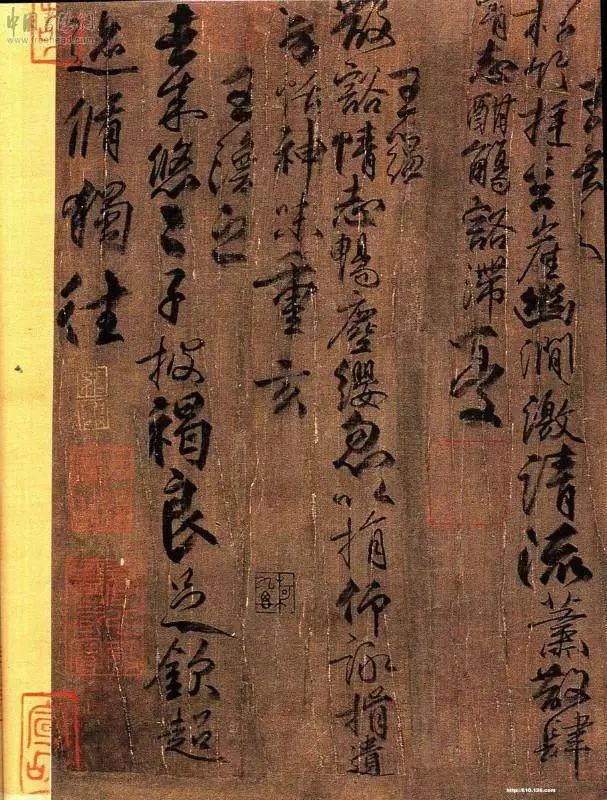 王玄之
松竹挺嵓崖幽澗激清流蕭散肆
情志酣觴豁滯憂
王蘊
散豁情志暢塵纓忽以捐仰詠挹遺
芳怡神味重玄
王渙之
去來悠々子披褐良足欽超
迹脩獨往
www.freehead.com
http://610.126.com